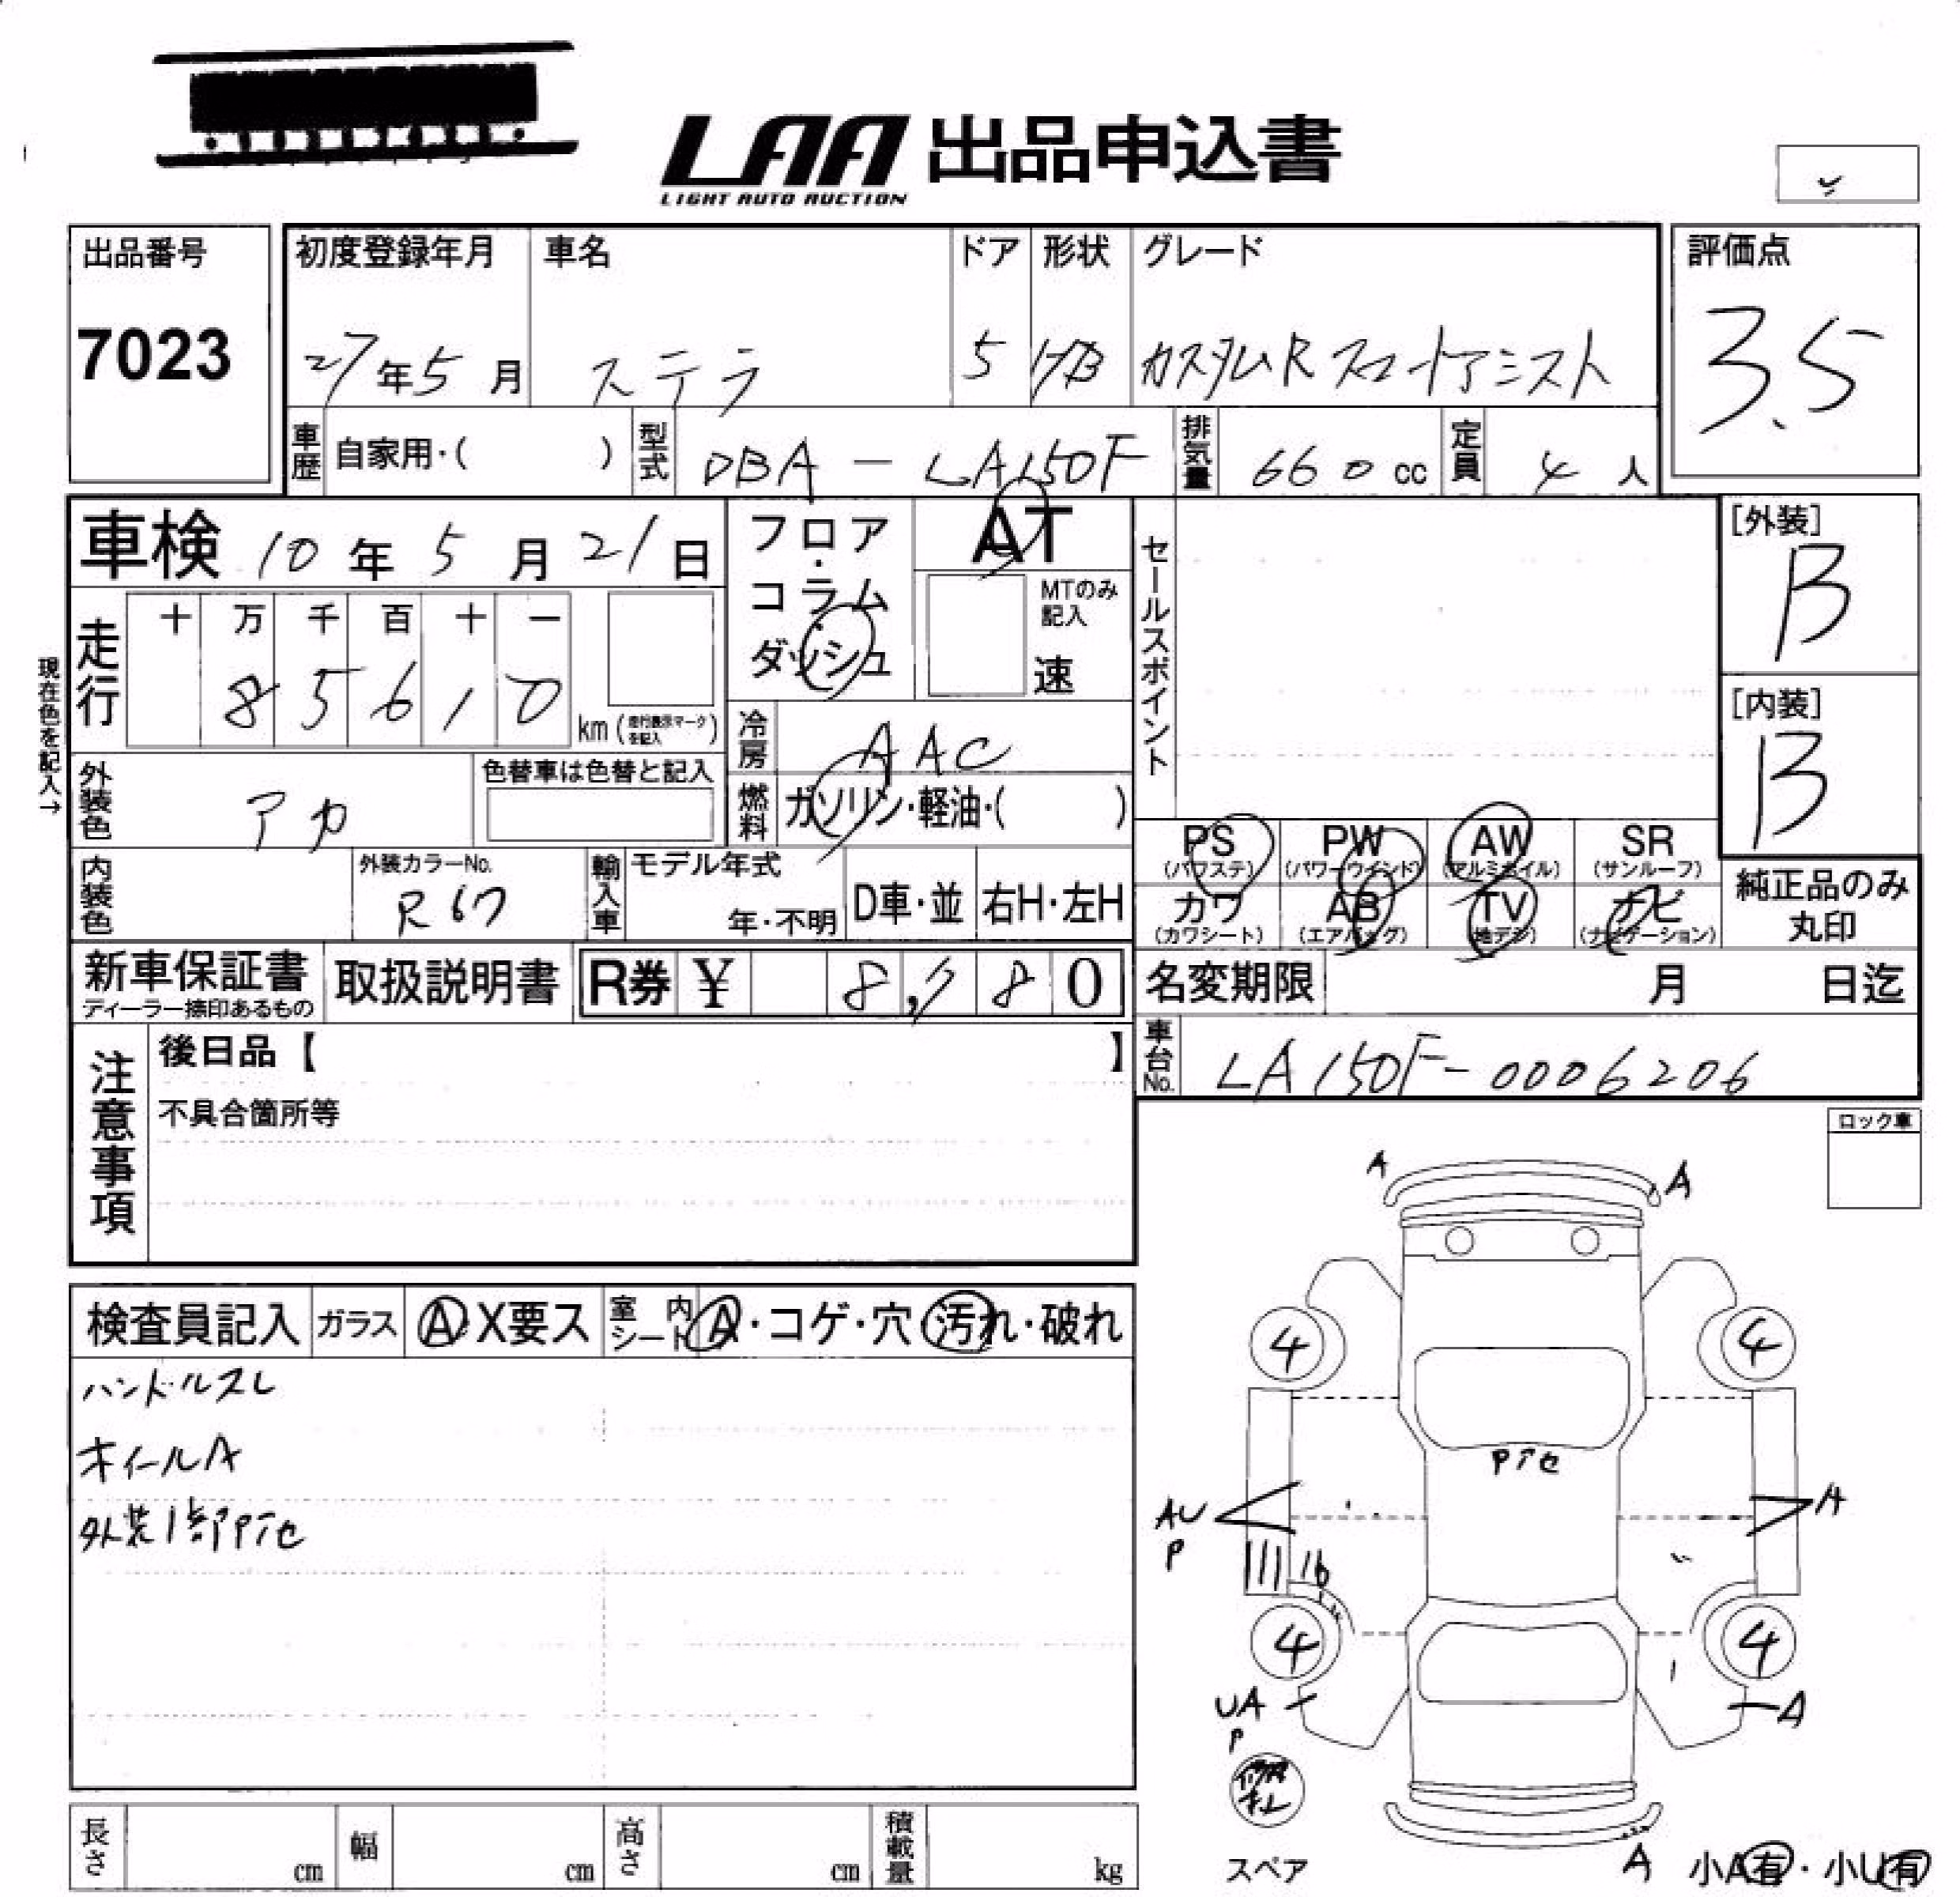 LAA 出品申込書
LIGHT AUTO AUCTION
出品番号
7023
初度登録年月
27年5月
車名
ステラ
ドア
5
形状
HB
グレード
カスタムR スマートアシスト
評価点
3.5
車歴 自家用・( )
型式 DBA-LA150F
排気量 660cc
定員 4人
車検 10年5月21日
フロア・コラム・ダッシュ
AT
MTのみ記入
速
セールスポイント
[外装]
B
[内装]
B
現在色を記入→
走行
十 万 千 百 十 一
8 5 6 1 0 km (走行表示マークを記入)
冷房 AAC
燃料 ガソリン・軽油・( )
外装色 アカ
色替車は色替と記入
内装色
外装カラーNo.
R67
輸入車
モデル年式
年・不明
D車・並
右H・左H
PS (パワステ)
PW (パワーウインド)
AW (アルミホイル)
SR (サンルーフ)
カワ (カワシート)
AB (エアバッグ)
TV (地デジ)
ナビ (ナビゲーション)
純正品のみ丸印
新車保証書
ディーラー捺印あるもの
取扱説明書
R券 ¥ 8,780
名変期限 月 日迄
車台No. LA150F-0006206
注意事項
後日品【 】
不具合箇所等
ロック車
検査員記入
ガラス A・X要ス
室内シート A・コゲ・穴・汚れ・破れ
ハンドルスレ
ホイールA
外装1部Pアセ
A
A
4
4
Pアセ
AU
P
A
16
4
4
UA
P
A
スペア
A
小A有・小U有
長さ cm
幅 cm
高さ cm
積載量 kg